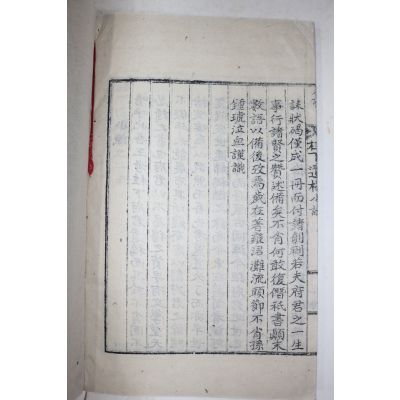 遺稿小識
誄狀碣僅成一冊而付諸剞劂若夫府君之一生
事行諸賢之贊述備矣不肖何敢復僭祇書顚末
數語以備後攷焉歲在著雍涒灘流頭節不肖孫
鍾琥泣血謹識